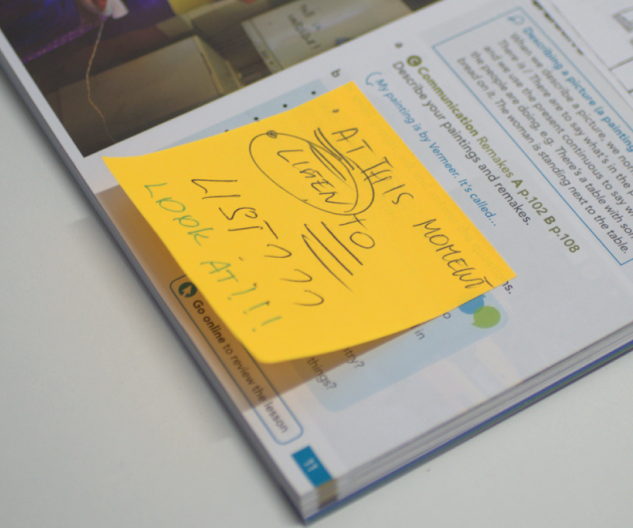 a
C Communication Remakes A p.102 B p.108
Describe your paintings and remakes.
My painting is by Vermeer. It's called…
b
Describing a picture (a painting
When we describe a picture, we
There is / There are to say what's in the
and we use the present continuous to say
the people are doing, e.g. There's a table with
bread on it. The woman is standing next to the table.
AT THIS MOMENT
LISTEN TO
LIST???
LOOK AT?!!!
in
try?
things?
Go online to review the lesson
11